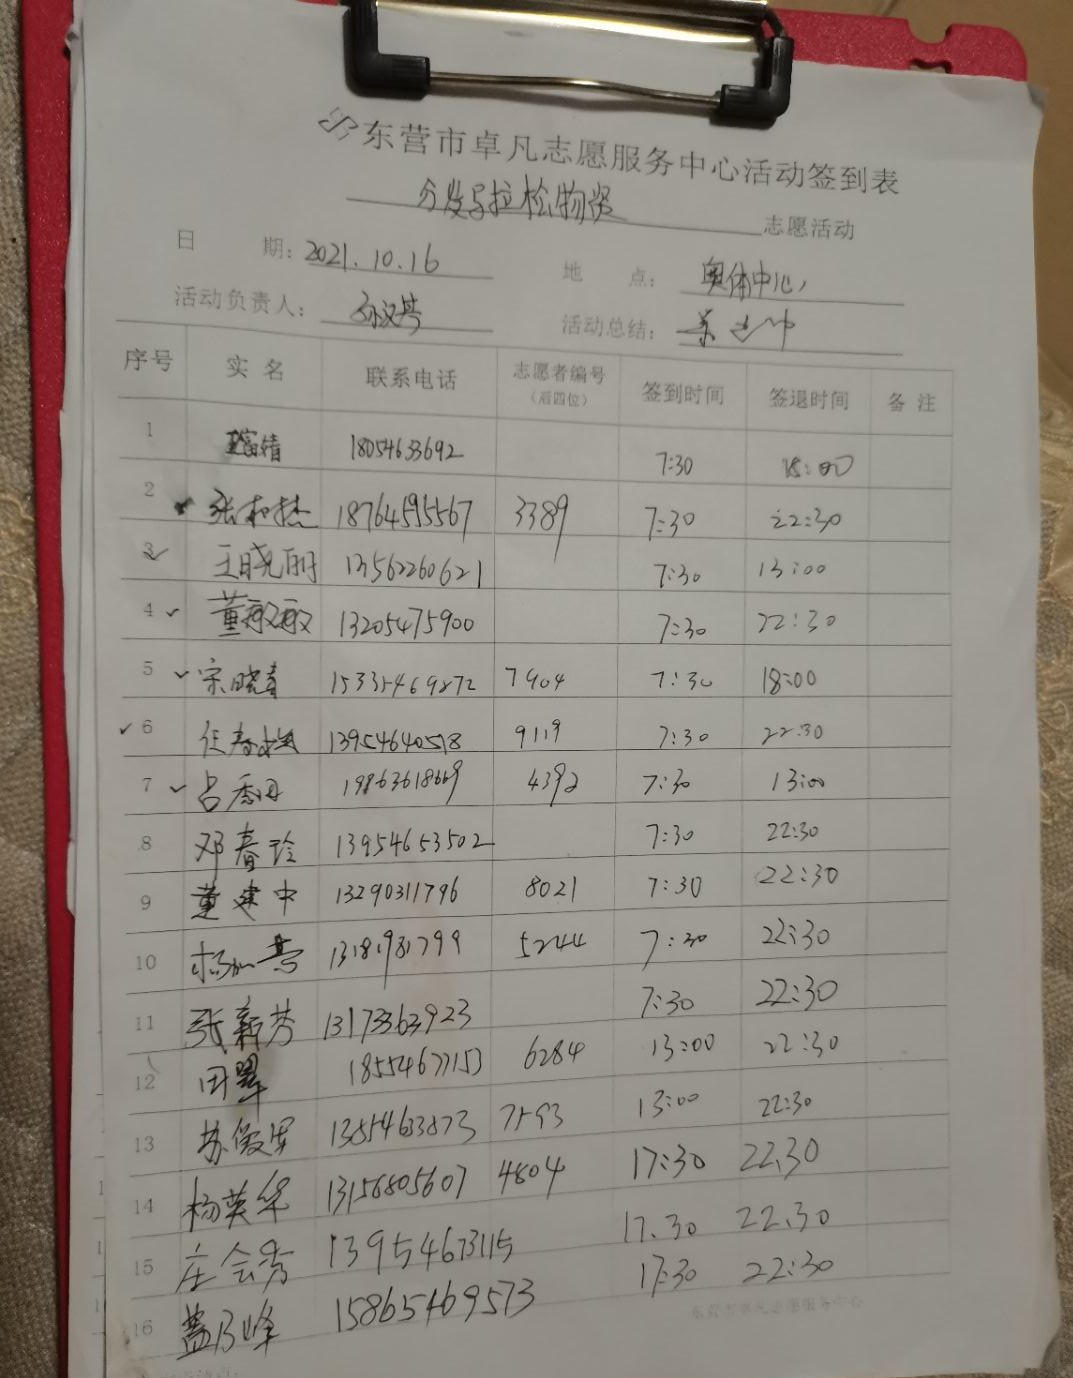 东营市卓凡志愿服务中心活动签到表
分发马拉松物资 志愿活动
日 期：2021.10.16 地 点：奥体中心
活动负责人： 活动总结：
序号 实 名 联系电话 志愿者编号（后四位） 签到时间 签退时间 备 注
1 18054633692 7:30 18:00
2 18764595567 3389 7:30 22:30
3 王晓丽 13562260621 7:30 13:00
4 董敏敏 13205475900 7:30 22:30
5 宋晓青 7904 7:30 18:00
6 13954640518 9119 7:30 22:30
7 19863618669 4392 7:30 13:00
8 邓春玲 13954653502 7:30 22:30
9 董建中 13290311796 8021 7:30 22:30
10 13181981799 5244 7:30 22:30
11 张新芳 13173363923 7:30 22:30
12 田翠 18554677153 6284 13:00 22:30
13 7593 13:00 22:30
14 杨英华 13156805607 4804 17:30 22.30
15 庄会秀 13954673115 17.30 22.30
16 15865469573 17:30 22:30
东营市卓凡志愿服务中心